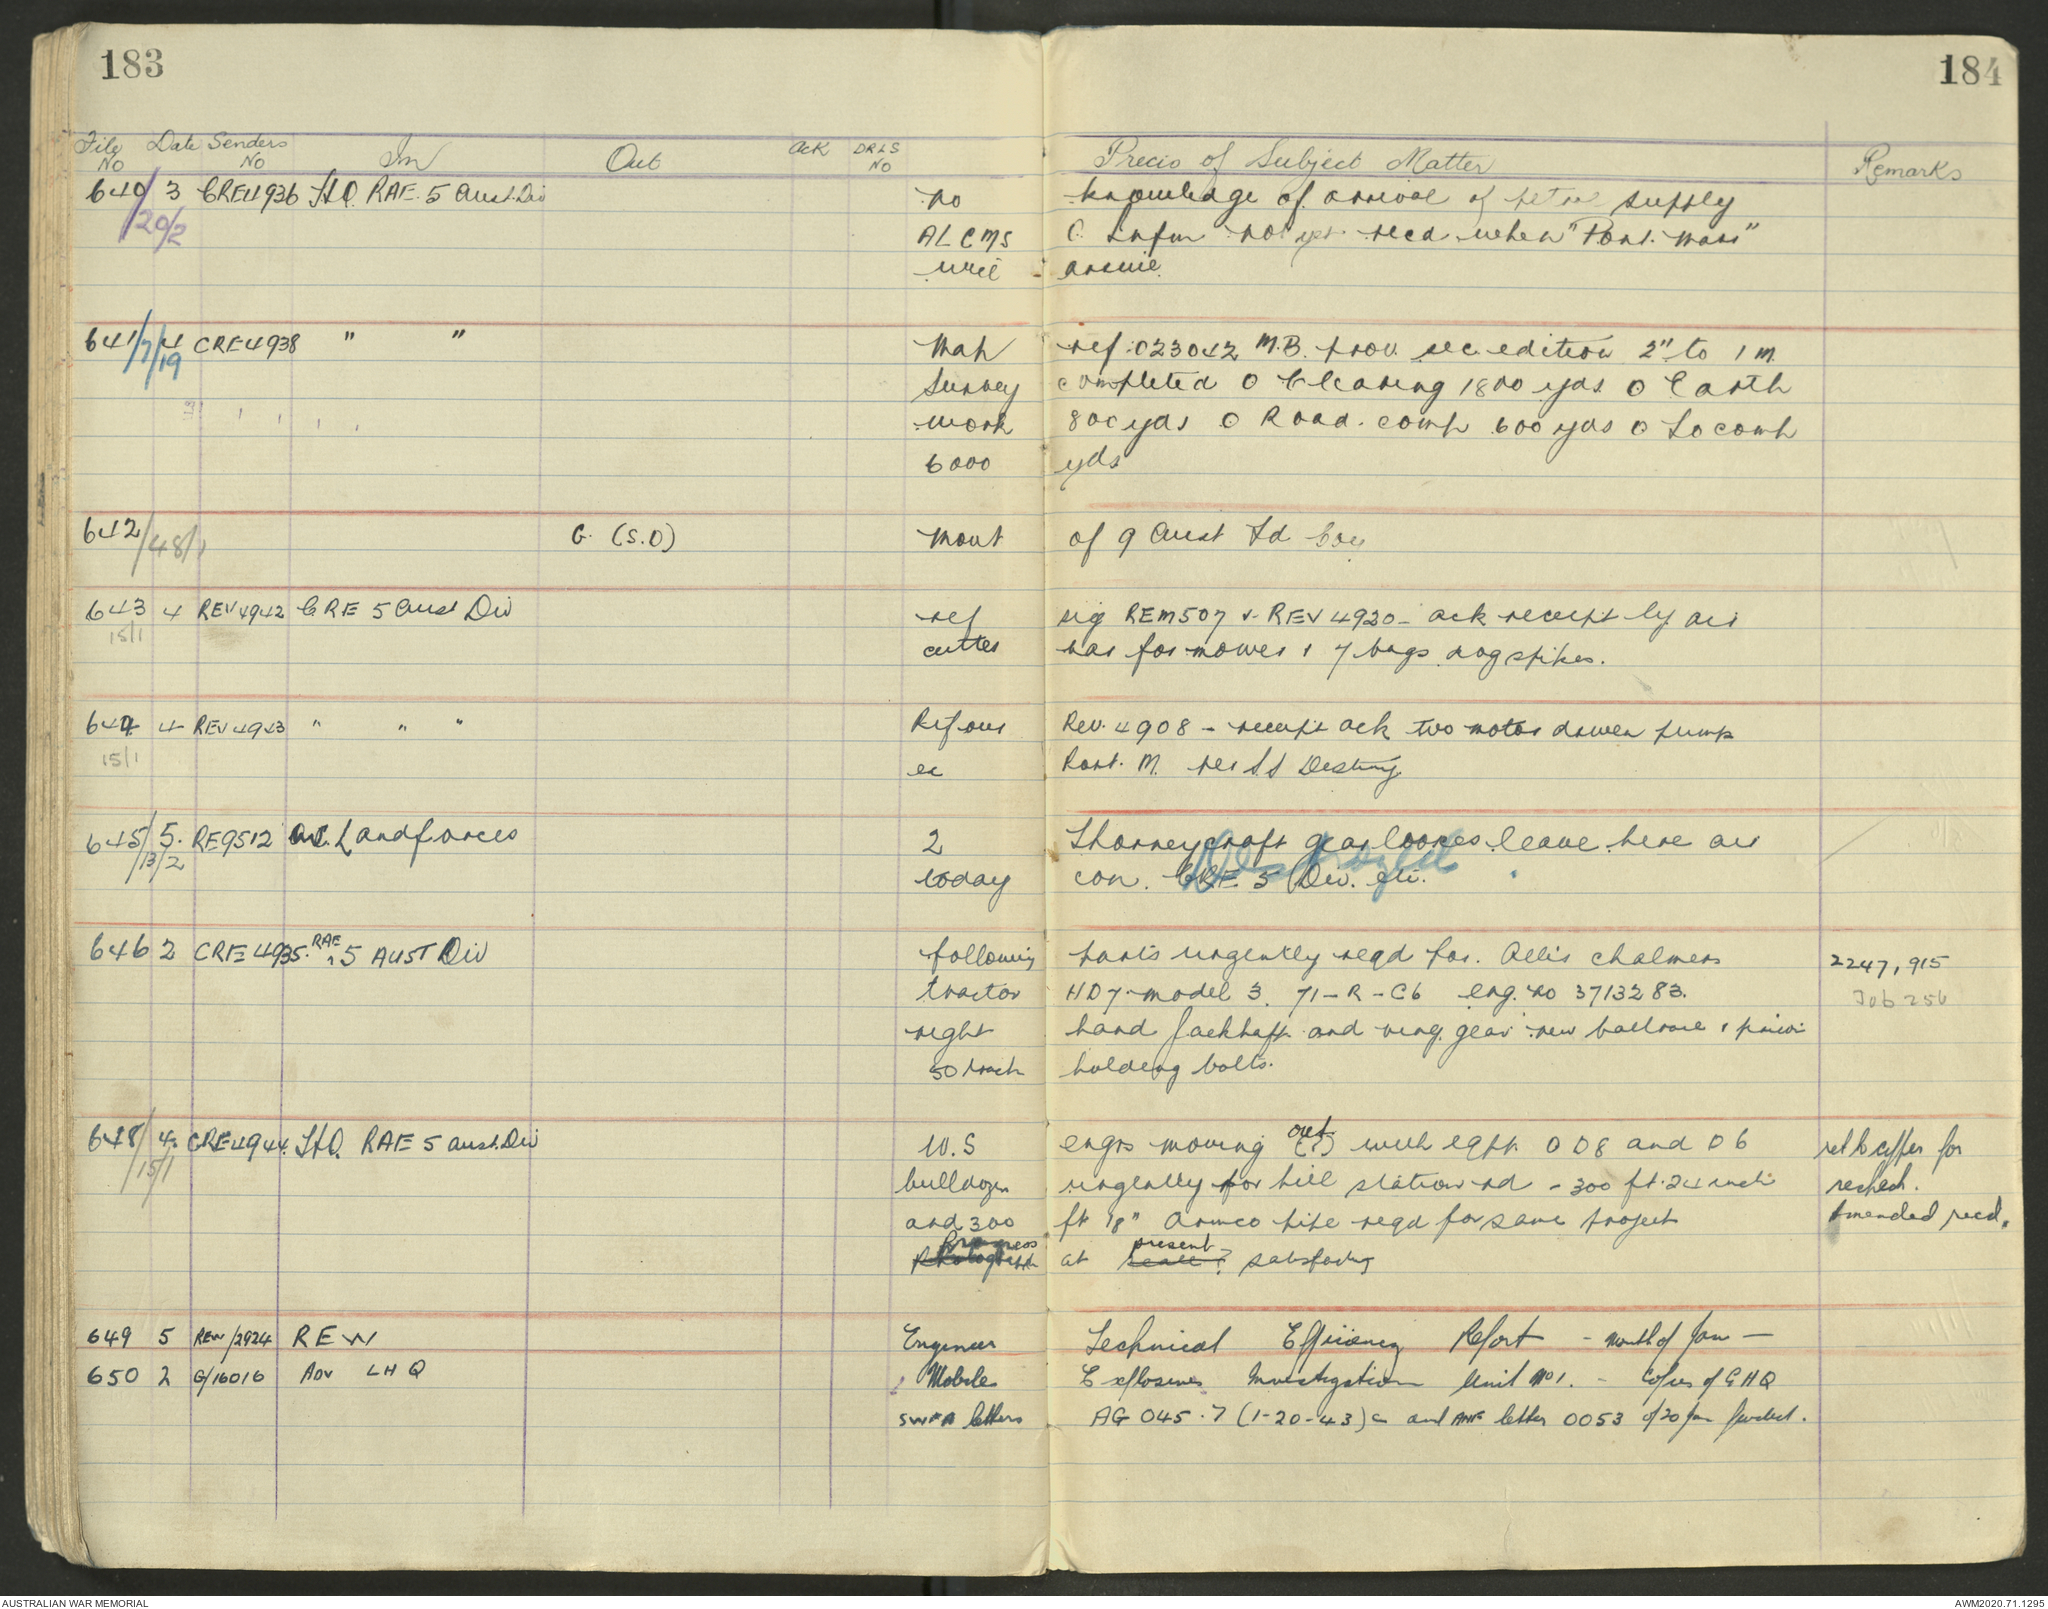 183
184
File No Date Senders No In Out Ack DRLS No Precis of Subject Matter Remarks
640 3 CRE4936 HQ. RAE. 5 Aust. Div no knowledge of arrival of supply
20/2 ALCMS O Infm not yet recd when "Port. Mars"
will arrive.
641 4 CRE4938 " " Map ref. 023042 M.B. prov. sec. edition 2" to 1 M.
7/19 Survey completed O Clearing 1800 yds O Earth
work 800 yds O Road. comp 600 yds O To comp
6000 yds
642 G. (S.D) Mount of 9 Aust Fd Coy
48/1
643 4 REV4942 CRE 5 Aust Div ref sig REM507 & REV4920 - ack receipt by air
15/1 cutter bar for mower & 7 bags dog spikes.
644 4 REV4943 " " " Ref our Rev. 4908 - receipt ack two motor driven pump
15/1 ex Port. M. per S.S Destiny
645 5. RE9512 Landforces 2 Thorneycroft gearboxes leave here air
13/2 today con. CRE 5 Div. etc.
646 2 CRE4935. RAE 5 AUST Div following parts urgently reqd for. Allis Chalmers 2247,915
tractor HD7. model 3. 71-R-C6 eng. no 3713283. Job 256
right hand and ring gear new ballrace & pinion
50 each holding bolts.
648 4. CRE4944. HQ. RAE 5 Aust. Div U.S engrs moving out (?) with eqpt. O D8 and D6 ret to cypher for
15/1 bulldozer urgently for hill station rd - 300 ft. 24 inch recheck.
and 300 ft 18" Armco pipe reqd for same project Amended recd.
Progress at present satisfactory
649 5 REW/2924 REW Engineer Technical Efficiency Report - month of Jan -
650 2 G/16016 Adv LHQ Mobile Explosives Investigation Unit No 1. - Copies of GHQ
SWPA letters AG 045.7 (1-20-43) and letter 0053 of 20 Jan
AUSTRALIAN WAR MEMORIAL
AWM2020.71.1295